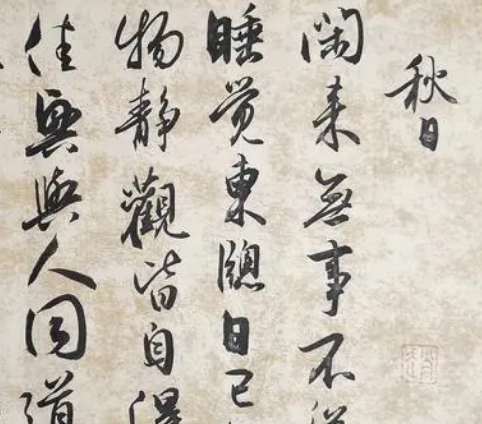 秋日
閑来無事不從
睡覚東窓日已
物静觀皆自得
佳興與人同道